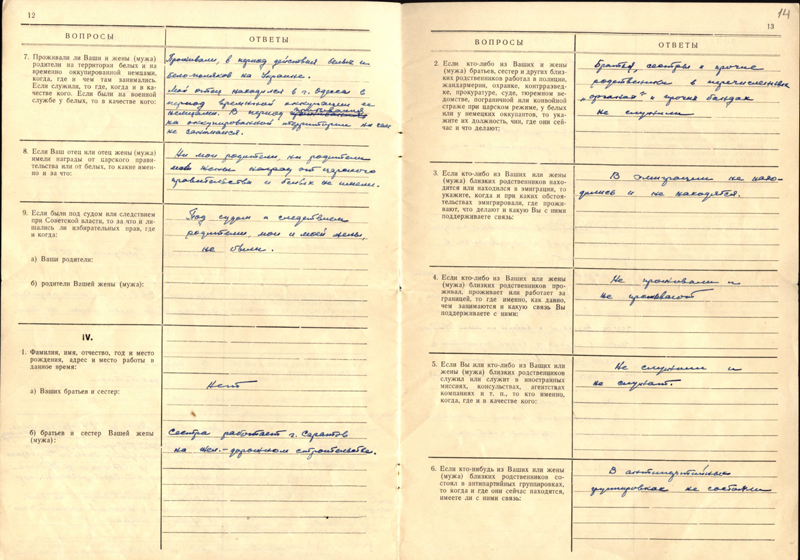 12
ВОПРОСЫ
ОТВЕТЫ
7. Проживали ли Ваши и жены (мужа)
родители на территории белых и на
временно оккупированной немцами,
когда, где и чем там занимались.
Если служили, то где, когда и в ка-
честве кого. Если были на военной
службе у белых, то в качестве кого:
Проживали, в период действия белых и
белополяков на Украине.
Мой отец находился в г. Одесса в
период временной оккупации ее
немцами. В период проживания
на оккупированной территории ни чем
не занимался.
8. Если Ваш отец или отец жены (мужа)
имели награды от царского прави-
тельства или от белых, то какие имен-
но и за что:
Ни мои родители, ни родители
моей жены наград от царского
правительства и белых не имели.
9. Если были под судом или следствием
при Советской власти, то за что и ли-
шались ли избирательных прав, где
и когда:
а) Ваши родители:
б) родители Вашей жены (мужа):
Под судом и следствием
родители, мои и моей жены,
не были.
IV.
1. Фамилия, имя, отчество, год и место
рождения, адрес и место работы в
данное время:
а) Ваших братьев и сестер:
Нет
б) братьев и сестер Вашей жены
(мужа):
Сестра работает г. Саратов
на жел.-дорожном строительстве.
14
13
ВОПРОСЫ
ОТВЕТЫ
2. Если кто-либо из Ваших и жены
(мужа) братьев, сестер и других близ-
ких родственников работал в полиции,
жандармерии, охранке, контрразвед-
ке, прокуратуре, суде, тюремном ве-
домстве, пограничной или конвойной
страже при царском режиме, у белых
или у немецких оккупантов, то укажи-
те их должность, чин, где они сей-
час и что делают:
Братья, сестры и прочие
родственники в перечисленных
"органах" и прочих бандах
не служили
3. Если кто-либо из Ваших или жены
(мужа) близких родственников нахо-
дится или находился в эмиграции, то
укажите, когда и при каких обстоя-
тельствах эмигрировали, где прожи-
вают, что делают и какую Вы с ними
поддерживаете связь:
В эмиграции не нахо-
дились и не находятся.
4. Если кто-либо из Ваших или жены
(мужа) близких родственников про-
живал, проживает или работает за
границей, то где именно, как давно,
чем занимаются и какую связь Вы
поддерживаете с ними:
Не проживали и
не проживают
5. Если Вы или кто-либо из Ваших или
жены (мужа) близких родственников
служил или служит в иностранных
миссиях, консульствах, агентствах
компаниях и т. п., то кто именно,
когда, где и в качестве кого:
Не служили и
не служат.
6. Если кто-нибудь из Ваших или жены
(мужа) близких родственников со-
стоял в антипартийных группировках,
то когда и где они сейчас находятся,
имеете ли с ними связь:
В антипартийных
группировках не состояли